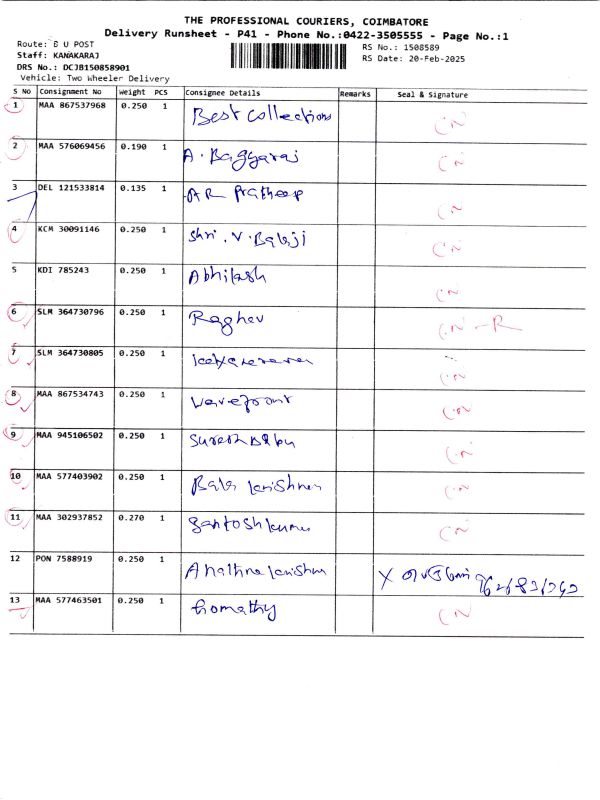 THE PROFESSIONAL COURIERS, COIMBATORE
Delivery Runsheet - P41 - Phone No.:0422-3505555 - Page No.:1
Route: B U POST
RS No.: 1508589
Staff: KANAKARAJ
RS Date: 20-Feb-2025
DRS No.: DCJB150858901
Vehicle: Two Wheeler Delivery
S No Consignment No Weight PCS Consignee Details Remarks Seal & Signature
1 MAA 867537968 0.250 1 Best Collections CN
2 MAA 576069456 0.190 1 A. Bagyaraj CN
3 DEL 121533814 0.135 1 AR Pratheep CN
4 KCM 30091146 0.250 1 Shri. V. Balaji CN
5 KDI 785243 0.250 1 Abhilash CN
6 SLM 364730796 0.250 1 Raghav CN - R
7 SLM 364730805 0.250 1 CN
8 MAA 867534743 0.250 1 Wavefront CN
9 MAA 945106502 0.250 1 Suresh Babu CN
10 MAA 577403902 0.250 1 Bala krishnan CN
11 MAA 302937852 0.270 1 Santosh kumar CN
12 PON 7588919 0.250 1 X
13 MAA 577463501 0.250 1 Gomathy CN